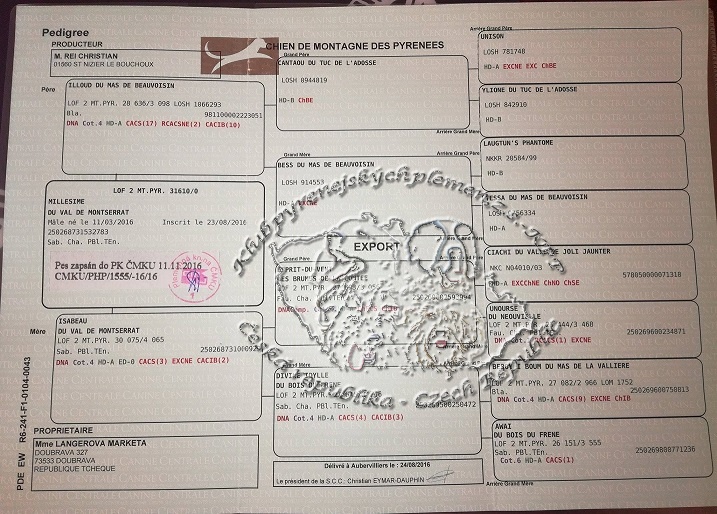 Pedigree
PRODUCTEUR
M. REI CHRISTIAN
01560 ST NIZIER LE BOUCHOUX
CHIEN DE MONTAGNE DES PYRENEES
Père
ILLOUD DU MAS DE BEAUVOISIN
LOF 2 MT.PYR. 28 636/3 098 LOSH 1066293
Bla. 981100002223051
DNA Cot.4 HD-A CACS(17) RCACSNE(2) CACIB(10)
LOF 2 MT.PYR. 31610/0
MILLESIME
DU VAL DE MONTSERRAT
Mâle né le 11/03/2016 Inscrit le 23/08/2016
250268731532783
Sab. Cha. PBl.TEn.
Pes zapsán do PK ČMKU 11.11.2016
CMKU/PHP/1555/-16/16
Mère
ISABEAU
DU VAL DE MONTSERRAT
LOF 2 MT.PYR. 30 075/4 065
Sab. PBl.TEn.
DNA Cot.4 HD-A ED-0 CACS(3) EXCNE CACIB(2)
PROPRIETAIRE
Mme LANGEROVA MARKETA
DOUBRAVA 327
73533 DOUBRAVA
REPUBLIQUE TCHEQUE
PDE EW R6-241-F1-0104-0043
Grand Père
CANTAOU DU TUC DE L'ADOSSE
LOSH 8944819
HD-B ChBE
Grand Mère
BESS DU MAS DE BEAUVOISIN
LOSH 914553
HD-A EXCNE
EXPORT
Grand Père
Grand Mère
LOF 2 MT.PYR.
Sab. Cha. PBl.TEn. 250269500250472
DNA Cot.4 HD-A CACS(4) CACIB(3)
Délivré à Aubervilliers le : 24/08/2016
Le président de la S.C.C.: Christian EYMAR-DAUPHIN
Arrière Grand Père
UNISON
LOSH 781748
HD-A EXCNE EXC ChBE
YLIONE DU TUC DE L'ADOSSE
LOSH 842910
HD-B
Arrière Grand Mère
Arrière Grand Père
LAUGTUN'S PHANTOME
NKKR 20584/99
HD-B
DU MAS DE BEAUVOISIN
LOSH
HD-A
Arrière Grand Mère
CIACHI DU VALLEE DE JOLI JAUNTER
NKC N04010/03 578050000071318
HD-A EXCChNE ChNO ChSE
UNOURSE
DU NEOUVIELLE
LOF 2 MT.PYR.
250269600234871
Arrière Grand Père
I BOUM DU MAS DE LA VALLIERE
LOF 2 MT.PYR. 27 082/2 966 LOM 1752
Bla. 250269600750813
DNA Cot.4 HD-A CACS(9) EXCNE ChIB
AWAI
DU BOIS DU FRENE
LOF 2 MT.PYR. 26 151/3 555
Sab. PBl.TEn. 250269800771236
Cot.6 HD-A CACS(1)
Arrière Grand Mère
Klub pyrenejských plemen z.s. - KPP
Česká republika - Czech Republic